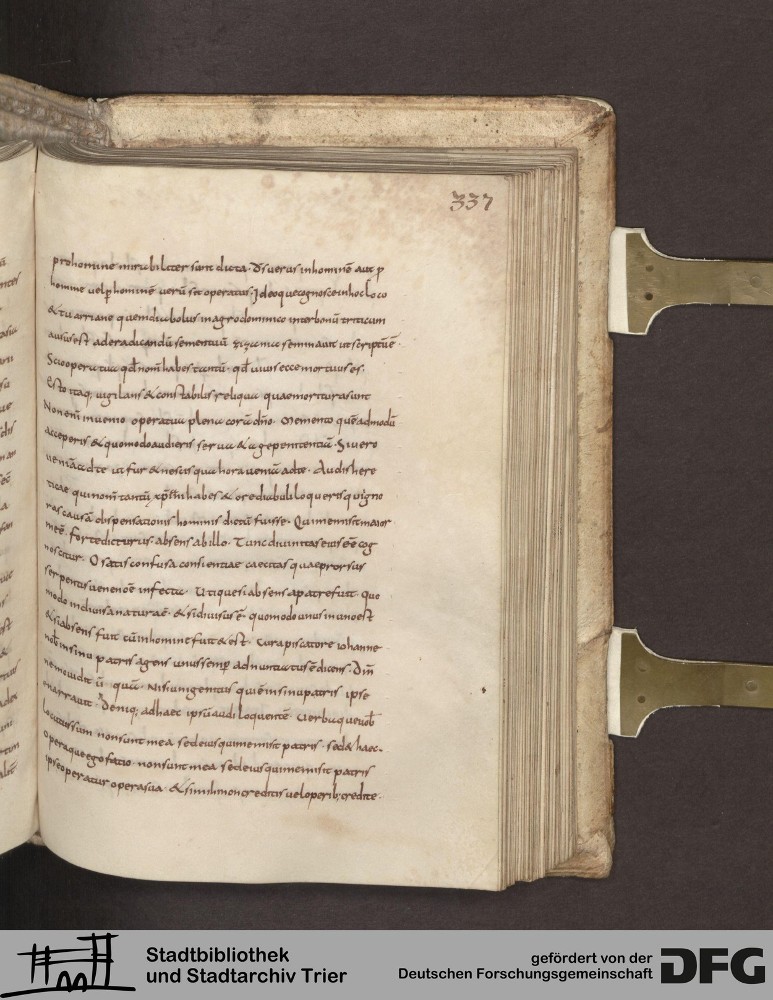 337
prohomine mirabiliter sunt dicta. Ds uerus inhominē aut p
homine uel p hominē uerū sit operatus. Ideoque cognosce inhocloco
& tu arriane quem diabolus inagrodominico interbonū triticum
ausus est aderadicandū sementiuū zizania seminauit ut scriptū ē.
Scio opera tua qd nom̄ habes tantū. qd uiuis ecce mortuus es.
Esto itaq; uigilans & constabilis reliqua quae moritura sunt
Non enī inuenio opera tua plena corā dn̄o. Memento quē admodū
acceperis & quomodo audieris serua & age penitentiā. Si uero
ueniā ad te ut fur & nescis qua hora ueniā ad te. Audis here
ticae qui nom̄ tantū xp̄iani habes & ore diabuli loqueris quigno
ras causā dispensationis hominis dictū fuisse. Qui me misit maior
me ē. forte dicturus absens ab illo. Tunc diuinitas eius ēē cog
noscitur. O satis confusa consientiae caecitas quae prorsus
serpentis uenenoē infecta. Utique si absens a patre fuit. quo
modo indiuisa naturaē. & si diuisus ē. quomodo unus in uno est
& si absens fuit cū inhomine fuit & est. cura piscatore iohanne
nob̄ insinu patris agens unus semp adnuntiatus ē dicens. Dm̄
nemo uidit ū quā. Nisi unigenitus qui ē in sinu patris ipse
enarrauit. Deniq; adhaec ipsū audi loquentē. Uerba que uob̄
locutus sum non sunt mea sed eius qui me misit patris. sed & haec.
opera que ego facio. non sunt mea sed eius qui me misit patris
ipse operatur opera sua. & si mihi non creditis uel operib; credite.
Stadtbibliothek
und Stadtarchiv Trier
gefördert von der
Deutschen Forschungsgemeinschaft
DFG